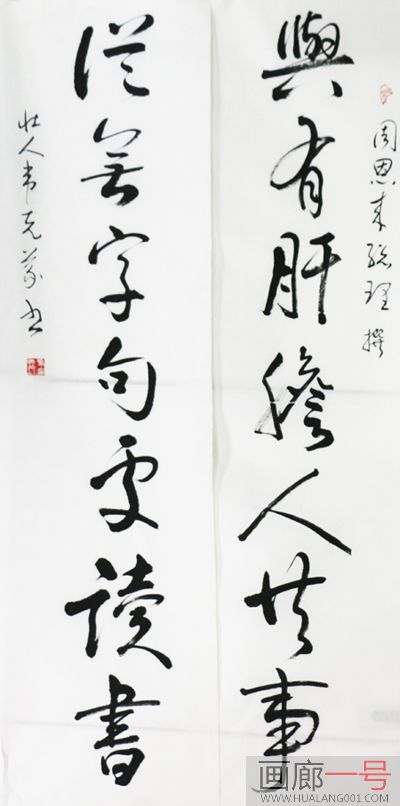 與有肝膽人共事
周恩来總理撰
從無字句處讀書
壮人韦克義书
画廊一号
WWW.HUALANG001.COM